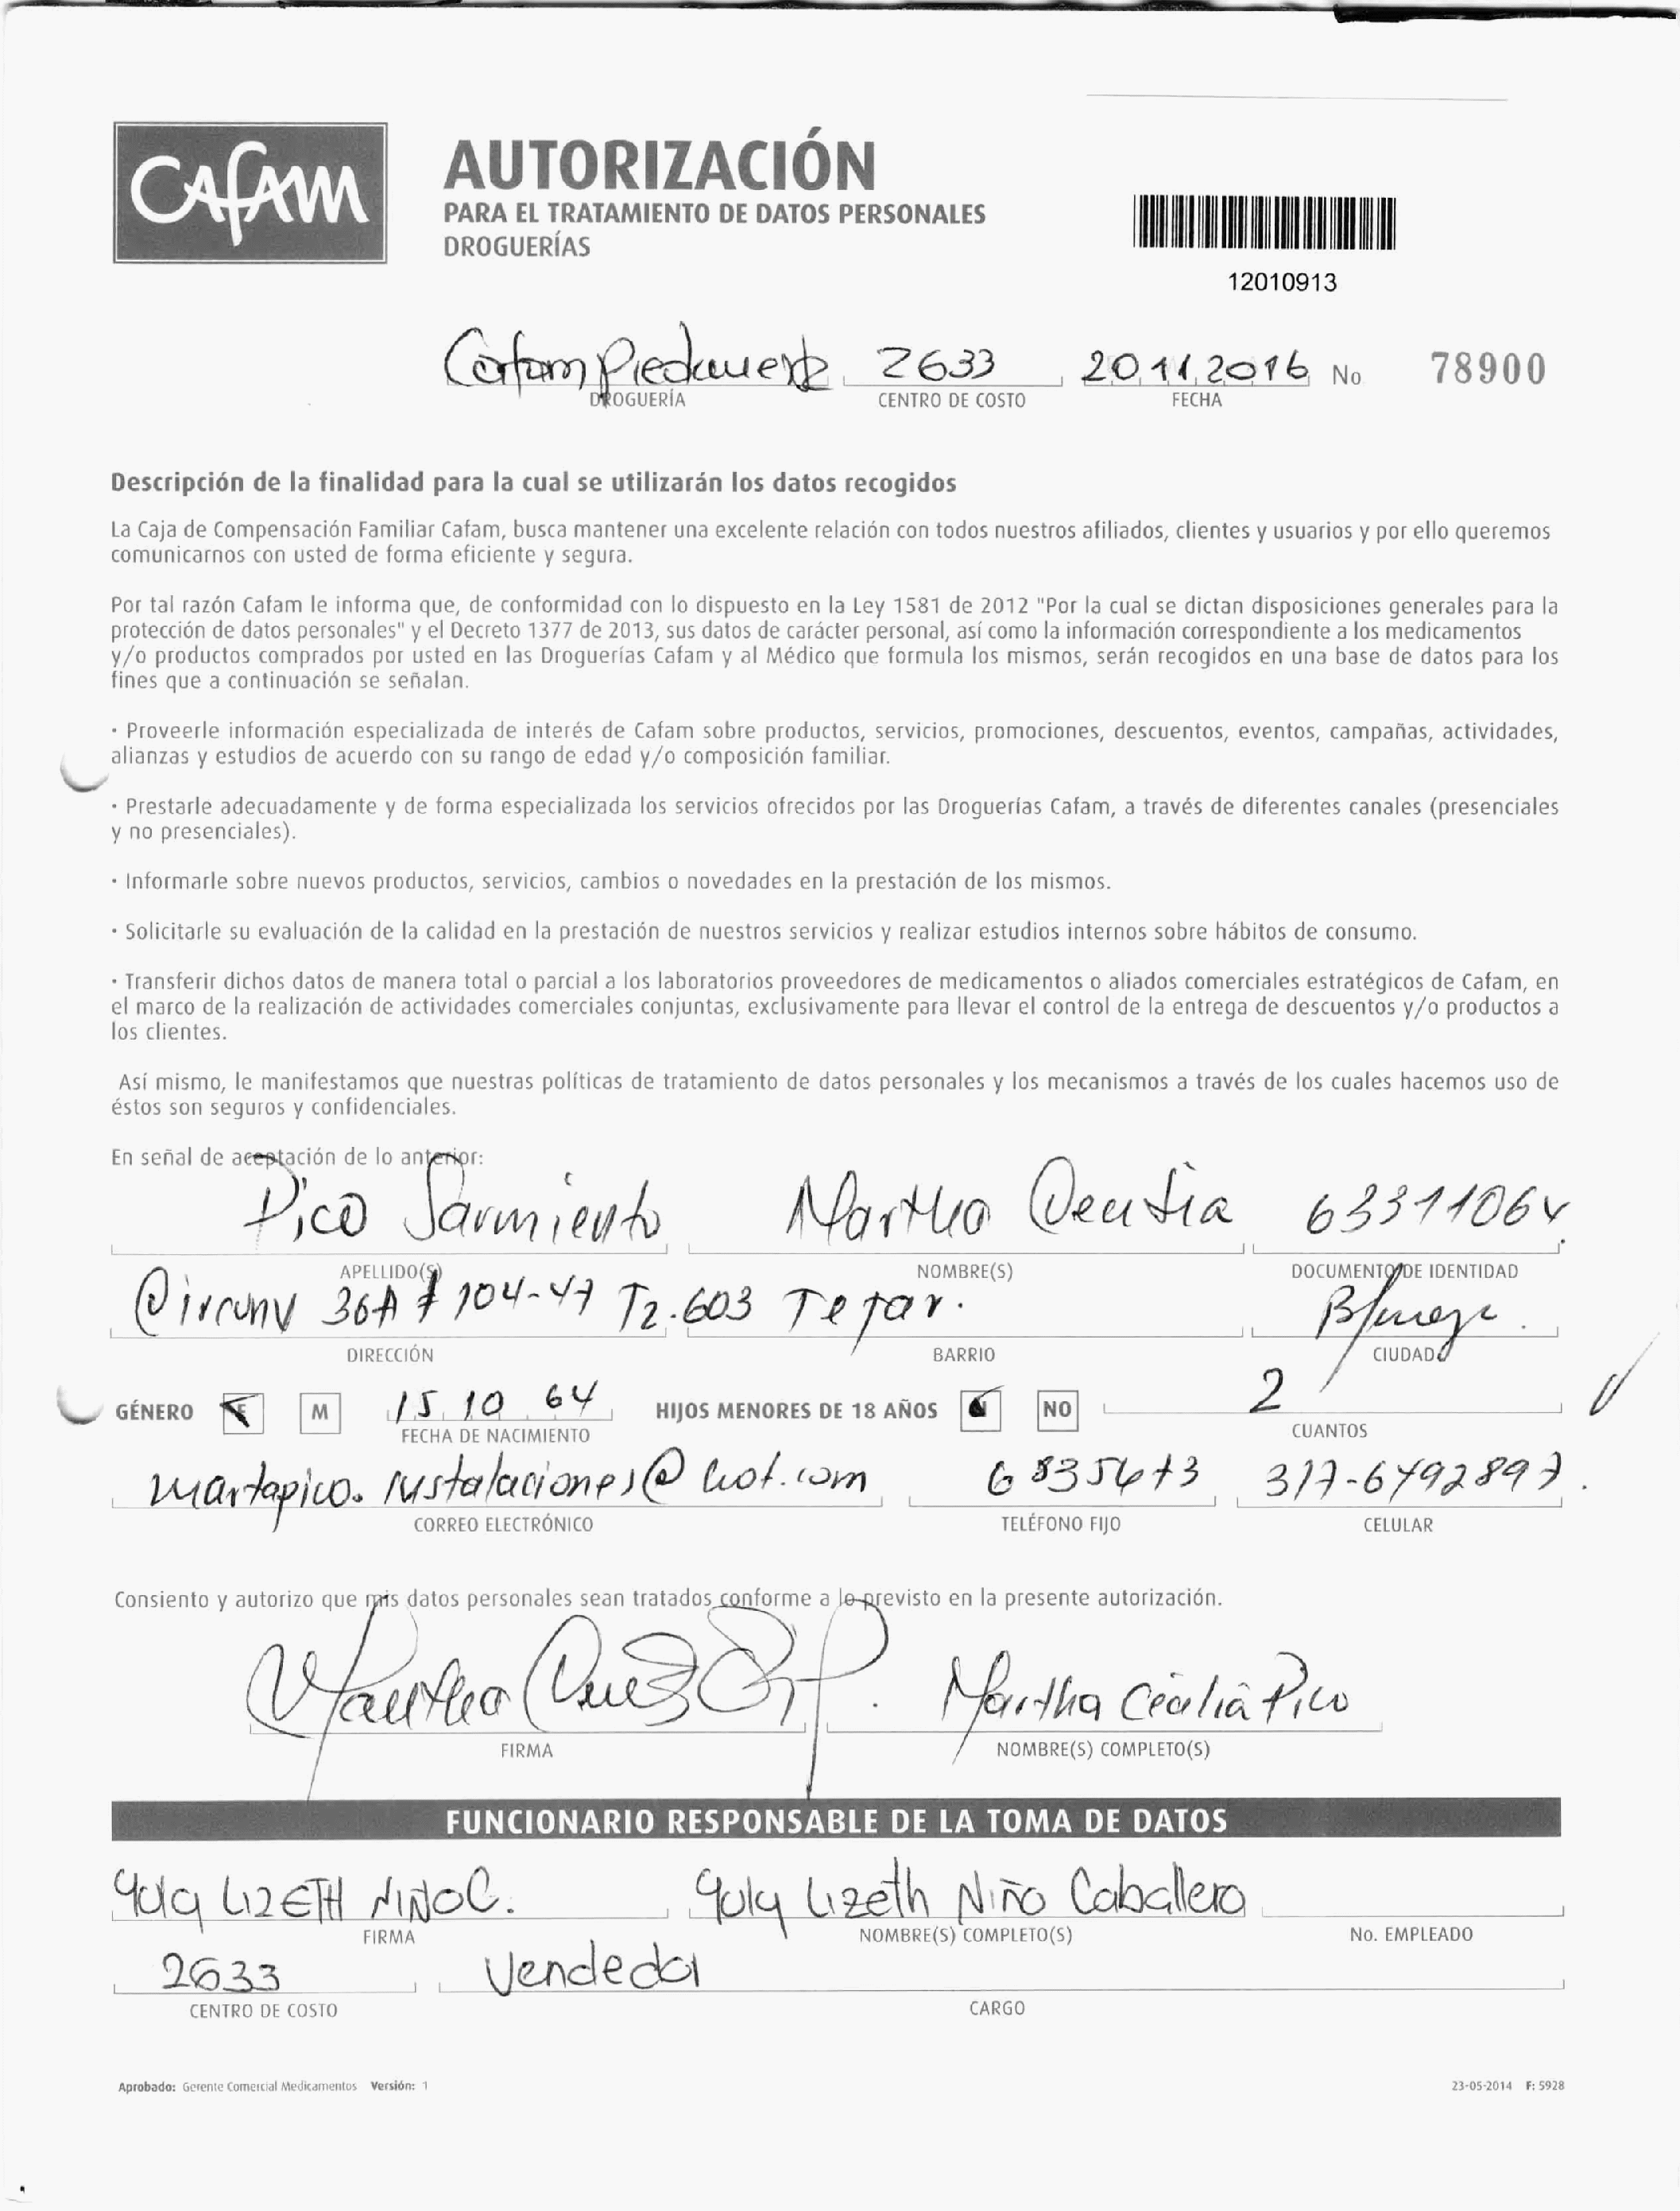 CAFAM
AUTORIZACIÓN
PARA EL TRATAMIENTO DE DATOS PERSONALES
DROGUERÍAS
12010913
Cafam 2633 20 11 2016 No 78900
DROGUERÍA CENTRO DE COSTO FECHA
Descripción de la finalidad para la cual se utilizarán los datos recogidos
La Caja de Compensación Familiar Cafam, busca mantener una excelente relación con todos nuestros afiliados, clientes y usuarios y por ello queremos
comunicarnos con usted de forma eficiente y segura.
Por tal razón Cafam le informa que, de conformidad con lo dispuesto en la Ley 1581 de 2012 "Por la cual se dictan disposiciones generales para la
protección de datos personales" y el Decreto 1377 de 2013, sus datos de carácter personal, así como la información correspondiente a los medicamentos
y/o productos comprados por usted en las Droguerías Cafam y al Médico que formula los mismos, serán recogidos en una base de datos para los
fines que a continuación se señalan.
· Proveerle información especializada de interés de Cafam sobre productos, servicios, promociones, descuentos, eventos, campañas, actividades,
alianzas y estudios de acuerdo con su rango de edad y/o composición familiar.
· Prestarle adecuadamente y de forma especializada los servicios ofrecidos por las Droguerías Cafam, a través de diferentes canales (presenciales
y no presenciales).
· Informarle sobre nuevos productos, servicios, cambios o novedades en la prestación de los mismos.
· Solicitarle su evaluación de la calidad en la prestación de nuestros servicios y realizar estudios internos sobre hábitos de consumo.
· Transferir dichos datos de manera total o parcial a los laboratorios proveedores de medicamentos o aliados comerciales estratégicos de Cafam, en
el marco de la realización de actividades comerciales conjuntas, exclusivamente para llevar el control de la entrega de descuentos y/o productos a
los clientes.
Así mismo, le manifestamos que nuestras políticas de tratamiento de datos personales y los mecanismos a través de los cuales hacemos uso de
éstos son seguros y confidenciales.
En señal de aceptación de lo anterior:
Pico Sarmiento Martha Cecilia 63311064
APELLIDO(S) NOMBRE(S) DOCUMENTO DE IDENTIDAD
36A # 104-47 T2.603 Tejar.
DIRECCIÓN BARRIO CIUDAD
GÉNERO F M 15 10 64 HIJOS MENORES DE 18 AÑOS NO 2
FECHA DE NACIMIENTO CUANTOS
martapico.instalaciones@hot.com 6835673 317-6492897.
CORREO ELECTRÓNICO TELÉFONO FIJO CELULAR
Consiento y autorizo que mis datos personales sean tratados conforme a lo previsto en la presente autorización.
Martha Cecilia Pico
FIRMA NOMBRE(S) COMPLETO(S)
FUNCIONARIO RESPONSABLE DE LA TOMA DE DATOS
Yuly LIZETH NIÑO C. Yuly Lizeth Niño Caballero
FIRMA NOMBRE(S) COMPLETO(S) No. EMPLEADO
2633 Vendedor
CENTRO DE COSTO CARGO
Aprobado: Gerente Comercial Medicamentos Versión: 1 23-05-2014 F: 5928